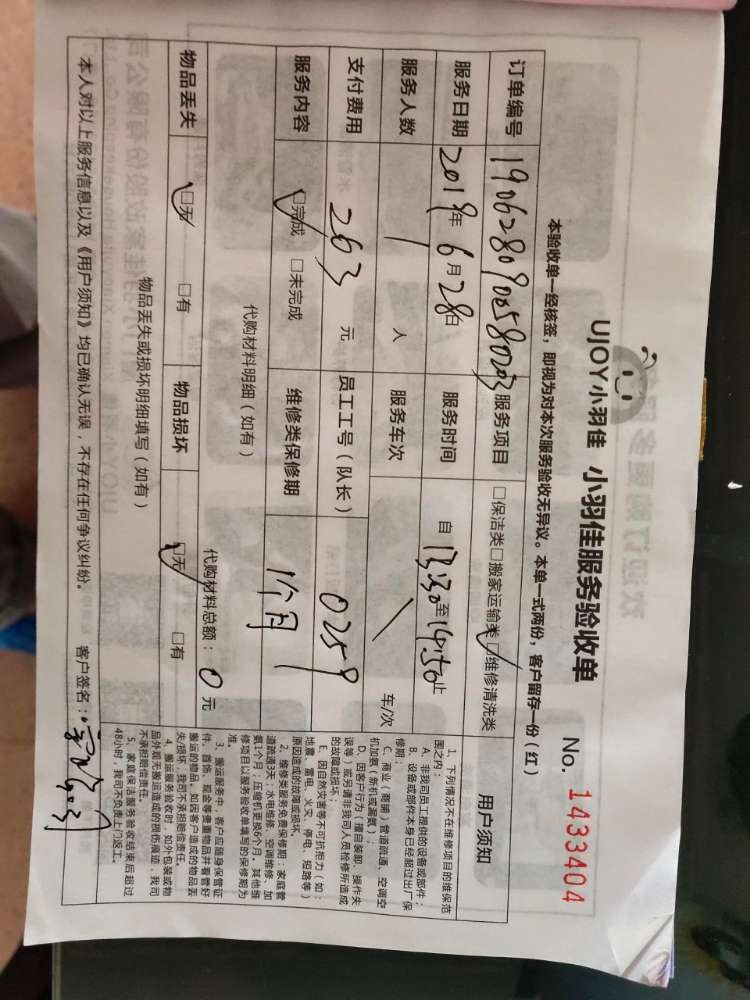 UJOY小羽佳 小羽佳服务验收单
No. 1433404
本验收单一经核签，即视为对本次服务验收无异议。本单一式两份，客户留存一份（红）
订单编号 19062809005800003 服务项目 □保洁类□搬家运输类□维修清洗类
服务日期 2019年6月28日 服务时间 自13:30至14:50止
服务人数 / 人 服务车次 / 车/次
支付费用 263 元 员工工号（队长） 0259
服务内容 □完成 □未完成 维修类保修期 1个月
代购材料明细（如有） 代购材料总额：0元
物品丢失 □无 □有 物品损坏 □无 □有
物品丢失或损坏明细填写（如有）
本人对以上服务信息以及《用户须知》均已确认无误，不存在任何争议纠纷。 客户签名：
用户须知
1、下列情况不在维修项目的维保范
围之内：
A、非我司员工提供的设备或部件；
B、设备或部件本身已经超过出厂保
修期；
C、商业（商铺）管道疏通、空调空
机加氨（新机或漏氨）；
D、因客户行为（擅自装卸、操作失
误等）或另请非我司人员检修所造成
的故障或损坏；
E、因自然灾害等不可抗拒力（如：
地震、雷电、火灾、停电、短路等）
原因造成的故障或损坏。
2、维修类服务免费保修期：家庭管
道疏通3天；水电维修、空调维修、加
氨1个月；压缩机更换6个月，其他维
修项目以服务验收单填写的保修期为
准。
3、搬运服务中，客户应随身保管证
件、首饰、现金等贵重物品并看管好
搬运的物品，如因客户造成的物品丢
失/损坏，我司不承担赔偿责任。
4、搬运服务验收时，如外包装或物
品外观无搬运造成的损伤痕迹，我司
不承担赔偿责任。
5、家庭保洁服务验收结束后超过
48小时，我司不负责上门返工。